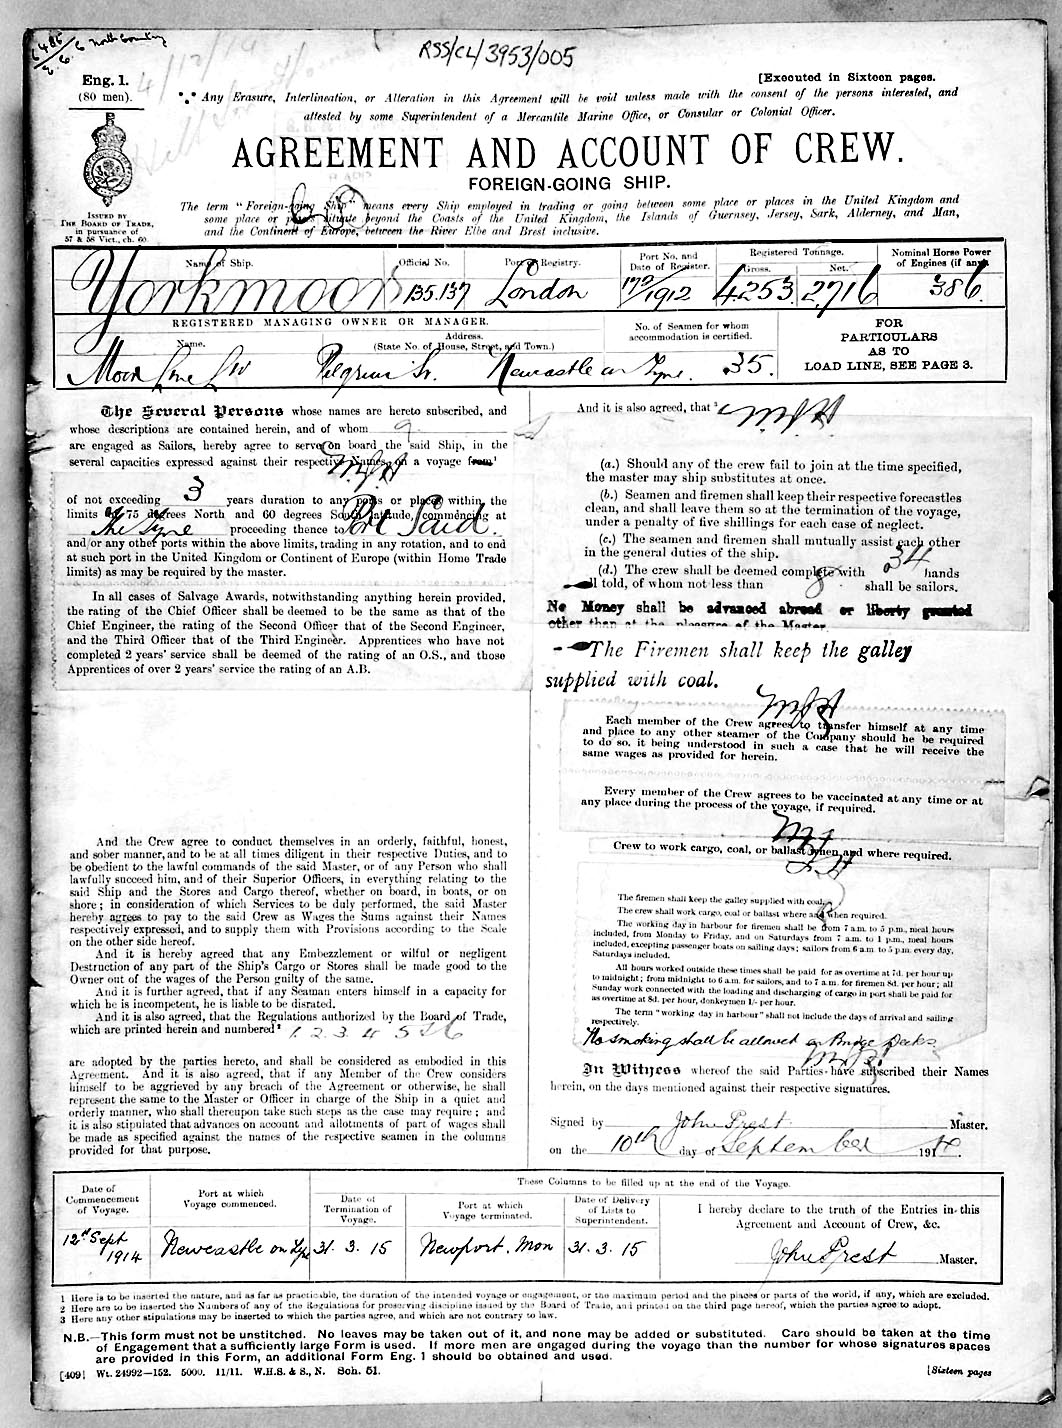 RSS/CL/3953/005
Eng. 1.
(80 men).
[Executed in Sixteen pages.
Any Erasure, Interlineation, or Alteration in this Agreement will be void unless made with the consent of the persons interested, and
attested by some Superintendent of a Mercantile Marine Office, or Consular or Colonial Officer.
AGREEMENT AND ACCOUNT OF CREW.
FOREIGN-GOING SHIP.
ISSUED BY
THE BOARD OF TRADE,
in pursuance of
57 & 58 Vict., ch. 60.
The term "Foreign-going Ship" means every Ship employed in trading or going between some place or places in the United Kingdom and
some place or places situate beyond the Coasts of the United Kingdom, the Islands of Guernsey, Jersey, Sark, Alderney, and Man,
and the Continent of Europe, between the River Elbe and Brest inclusive.
Name of Ship.
Official No.
Port of Registry.
Port No. and
Date of Register.
Registered Tonnage.
Gross.
Net.
Nominal Horse Power
of Engines (if any).
Yorkmoor
135.137
London
170/1912
4253
2716
386
REGISTERED MANAGING OWNER OR MANAGER.
Name.
Address.
(State No. of House, Street, and Town.)
No. of Seamen for whom
accommodation is certified.
FOR
PARTICULARS
AS TO
LOAD LINE, SEE PAGE 3.
Moor Line Ld
Pilgrim St. Newcastle on Tyne.
35.
The Several Persons whose names are hereto subscribed, and
whose descriptions are contained herein, and of whom 9
are engaged as Sailors, hereby agree to serve on board the said Ship, in the
several capacities expressed against their respective Names, on a voyage from¹
of not exceeding 3 years duration to any ports or places within the
limits of 75 degrees North and 60 degrees South latitude, commencing at
The Tyne proceeding thence to Port Said.
and/or any other ports within the above limits, trading in any rotation, and to end
at such port in the United Kingdom or Continent of Europe (within Home Trade
limits) as may be required by the master.
In all cases of Salvage Awards, notwithstanding anything herein provided,
the rating of the Chief Officer shall be deemed to be the same as that of the
Chief Engineer, the rating of the Second Officer that of the Second Engineer,
and the Third Officer that of the Third Engineer. Apprentices who have not
completed 2 years' service shall be deemed of the rating of an O.S., and those
Apprentices of over 2 years' service the rating of an A.B.
And the Crew agree to conduct themselves in an orderly, faithful, honest,
and sober manner, and to be at all times diligent in their respective Duties, and to
be obedient to the lawful commands of the said Master, or of any Person who shall
lawfully succeed him, and of their Superior Officers, in everything relating to the
said Ship and the Stores and Cargo thereof, whether on board, in boats, or on
shore; in consideration of which Services to be duly performed, the said Master
hereby agrees to pay to the said Crew as Wages the Sums against their Names
respectively expressed, and to supply them with Provisions according to the Scale
on the other side hereof.
And it is hereby agreed that any Embezzlement or wilful or negligent
Destruction of any part of the Ship's Cargo or Stores shall be made good to the
Owner out of the wages of the Person guilty of the same.
And it is further agreed, that if any Seaman enters himself in a capacity for
which he is incompetent, he is liable to be disrated.
And it is also agreed, that the Regulations authorized by the Board of Trade,
which are printed herein and numbered² 1. 2. 3. 4 5 & 6
are adopted by the parties hereto, and shall be considered as embodied in this
Agreement. And it is also agreed, that if any Member of the Crew considers
himself to be aggrieved by any breach of the Agreement or otherwise, he shall
represent the same to the Master or Officer in charge of the Ship in a quiet and
orderly manner, who shall thereupon take such steps as the case may require; and
it is also stipulated that advances on account and allotments of part of wages shall
be made as specified against the names of the respective seamen in the columns
provided for that purpose.
And it is also agreed, that ³
(a.) Should any of the crew fail to join at the time specified,
the master may ship substitutes at once.
(b.) Seamen and firemen shall keep their respective forecastles
clean, and shall leave them so at the termination of the voyage,
under a penalty of five shillings for each case of neglect.
(c.) The seamen and firemen shall mutually assist each other
in the general duties of the ship.
(d.) The crew shall be deemed complete with 34 hands
all told, of whom not less than 8 shall be sailors.
No Money shall be advanced abroad or liberty granted
other than at the pleasure of the Master.
The Firemen shall keep the galley
supplied with coal.
Each member of the Crew agrees to transfer himself at any time
and place to any other steamer of the Company should he be required
to do so, it being understood in such a case that he will receive the
same wages as provided for herein.
Every member of the Crew agrees to be vaccinated at any time or at
any place during the process of the voyage, if required.
Crew to work cargo, coal, or ballast when and where required.
The firemen shall keep the galley supplied with coal.
The crew shall work cargo, coal or ballast where and when required.
The working day in harbour for firemen shall be from 7 a.m. to 5 p.m., meal hours
included, from Monday to Friday, and on Saturdays from 7 a.m. to 1 p.m., meal hours
included, excepting passenger boats on sailing days; sailors from 6 a.m. to 5 p.m. every day,
Saturdays included.
All hours worked outside these times shall be paid for as overtime at 7d. per hour up
to midnight; from midnight to 6 a.m. for sailors, and to 7 a.m. for firemen 8d. per hour; all
Sunday work connected with the loading and discharging of cargo in port shall be paid for
as overtime at 8d. per hour, donkeymen 1/- per hour.
The term "working day in harbour" shall not include the days of arrival and sailing
respectively.
No smoking shall be allowed on Bridge Decks
In Witness whereof the said Parties have subscribed their Names
herein, on the days mentioned against their respective signatures.
Signed by John Prest Master.
on the 10th day of September 1914.
Date of
Commencement
of Voyage.
Port at which
Voyage commenced.
These Columns to be filled up at the end of the Voyage.
Date of
Termination of
Voyage.
Port at which
Voyage terminated.
Date of Delivery
of Lists to
Superintendent.
I hereby declare to the truth of the Entries in this
Agreement and Account of Crew, &c.
12th Sept
1914
Newcastle on Tyne
31. 3. 15
Newport. Mon
31. 3. 15
John Prest Master.
1 Here is to be inserted the nature, and as far as practicable, the duration of the intended voyage or engagement, or the maximum period and the places or parts of the world, if any, which are excluded.
2 Here are to be inserted the Numbers of any of the Regulations for preserving discipline issued by the Board of Trade, and printed on the third page hereof, which the parties agree to adopt.
3 Here any other stipulations may be inserted to which the parties agree, and which are not contrary to law.
N.B.—This form must not be unstitched. No leaves may be taken out of it, and none may be added or substituted. Care should be taken at the time
of Engagement that a sufficiently large Form is used. If more men are engaged during the voyage than the number for whose signatures spaces
are provided in this Form, an additional Form Eng. 1 should be obtained and used.
[409] Wt. 24992—152. 5000. 11/11. W.H.S. & S., N. Sch. 51.
[Sixteen pages